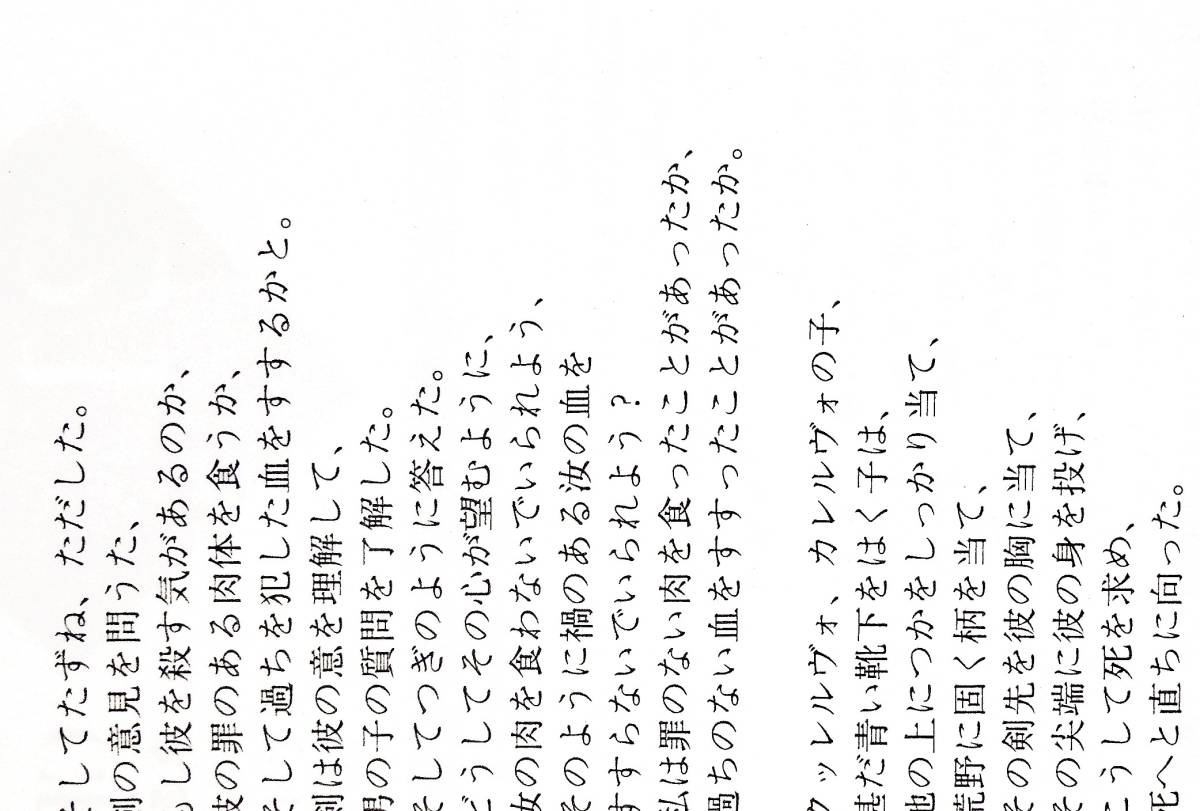 そしてたずね、ただした。
剣の意見を問うた、
もし彼を殺す気があるのか、
彼の罪のある肉体を食うか、
そして過ちを犯した血をすするかと。
剣は彼の意を理解して、
男の子の質問を了解した。
そしてつぎのように答えた。
どうしてその心が望むように、
汝の肉を食わないでいられよう、
そのように禍のある汝の血を
すすらないでいられよう?
私は罪のない肉を食ったことがあったか、
過ちのない血をすすったことがあったか。
クッレルヴォ、カレルヴォの子、
甚だ青い靴下をはく子は、
地の上につかをしっかり当て、
荒野に固く柄を当て、
その剣先を彼の胸に当て、
その尖端に彼の身を投げ、
こうして死を求め、
死へと直ちに向った。